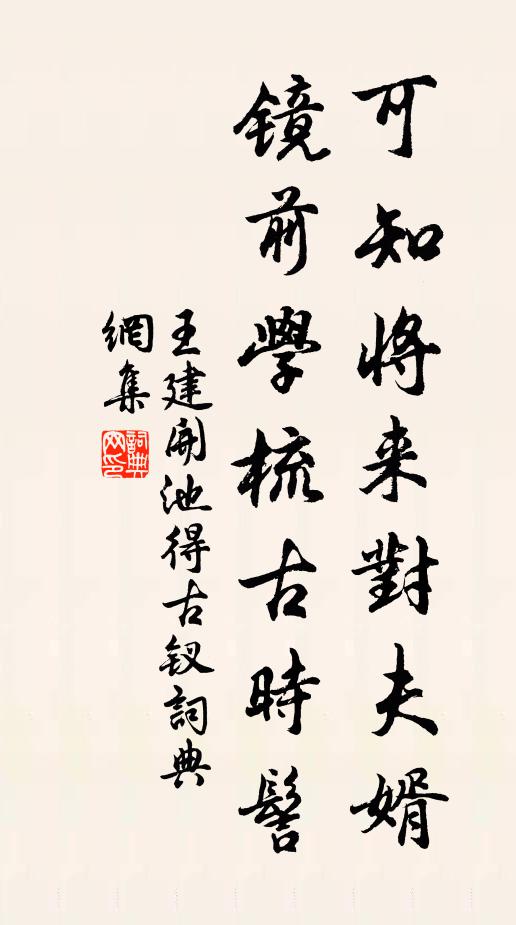 可知将来對夫婿
镜前學梳古時髻
王建開池得古钗詞典
網集
詞典网印